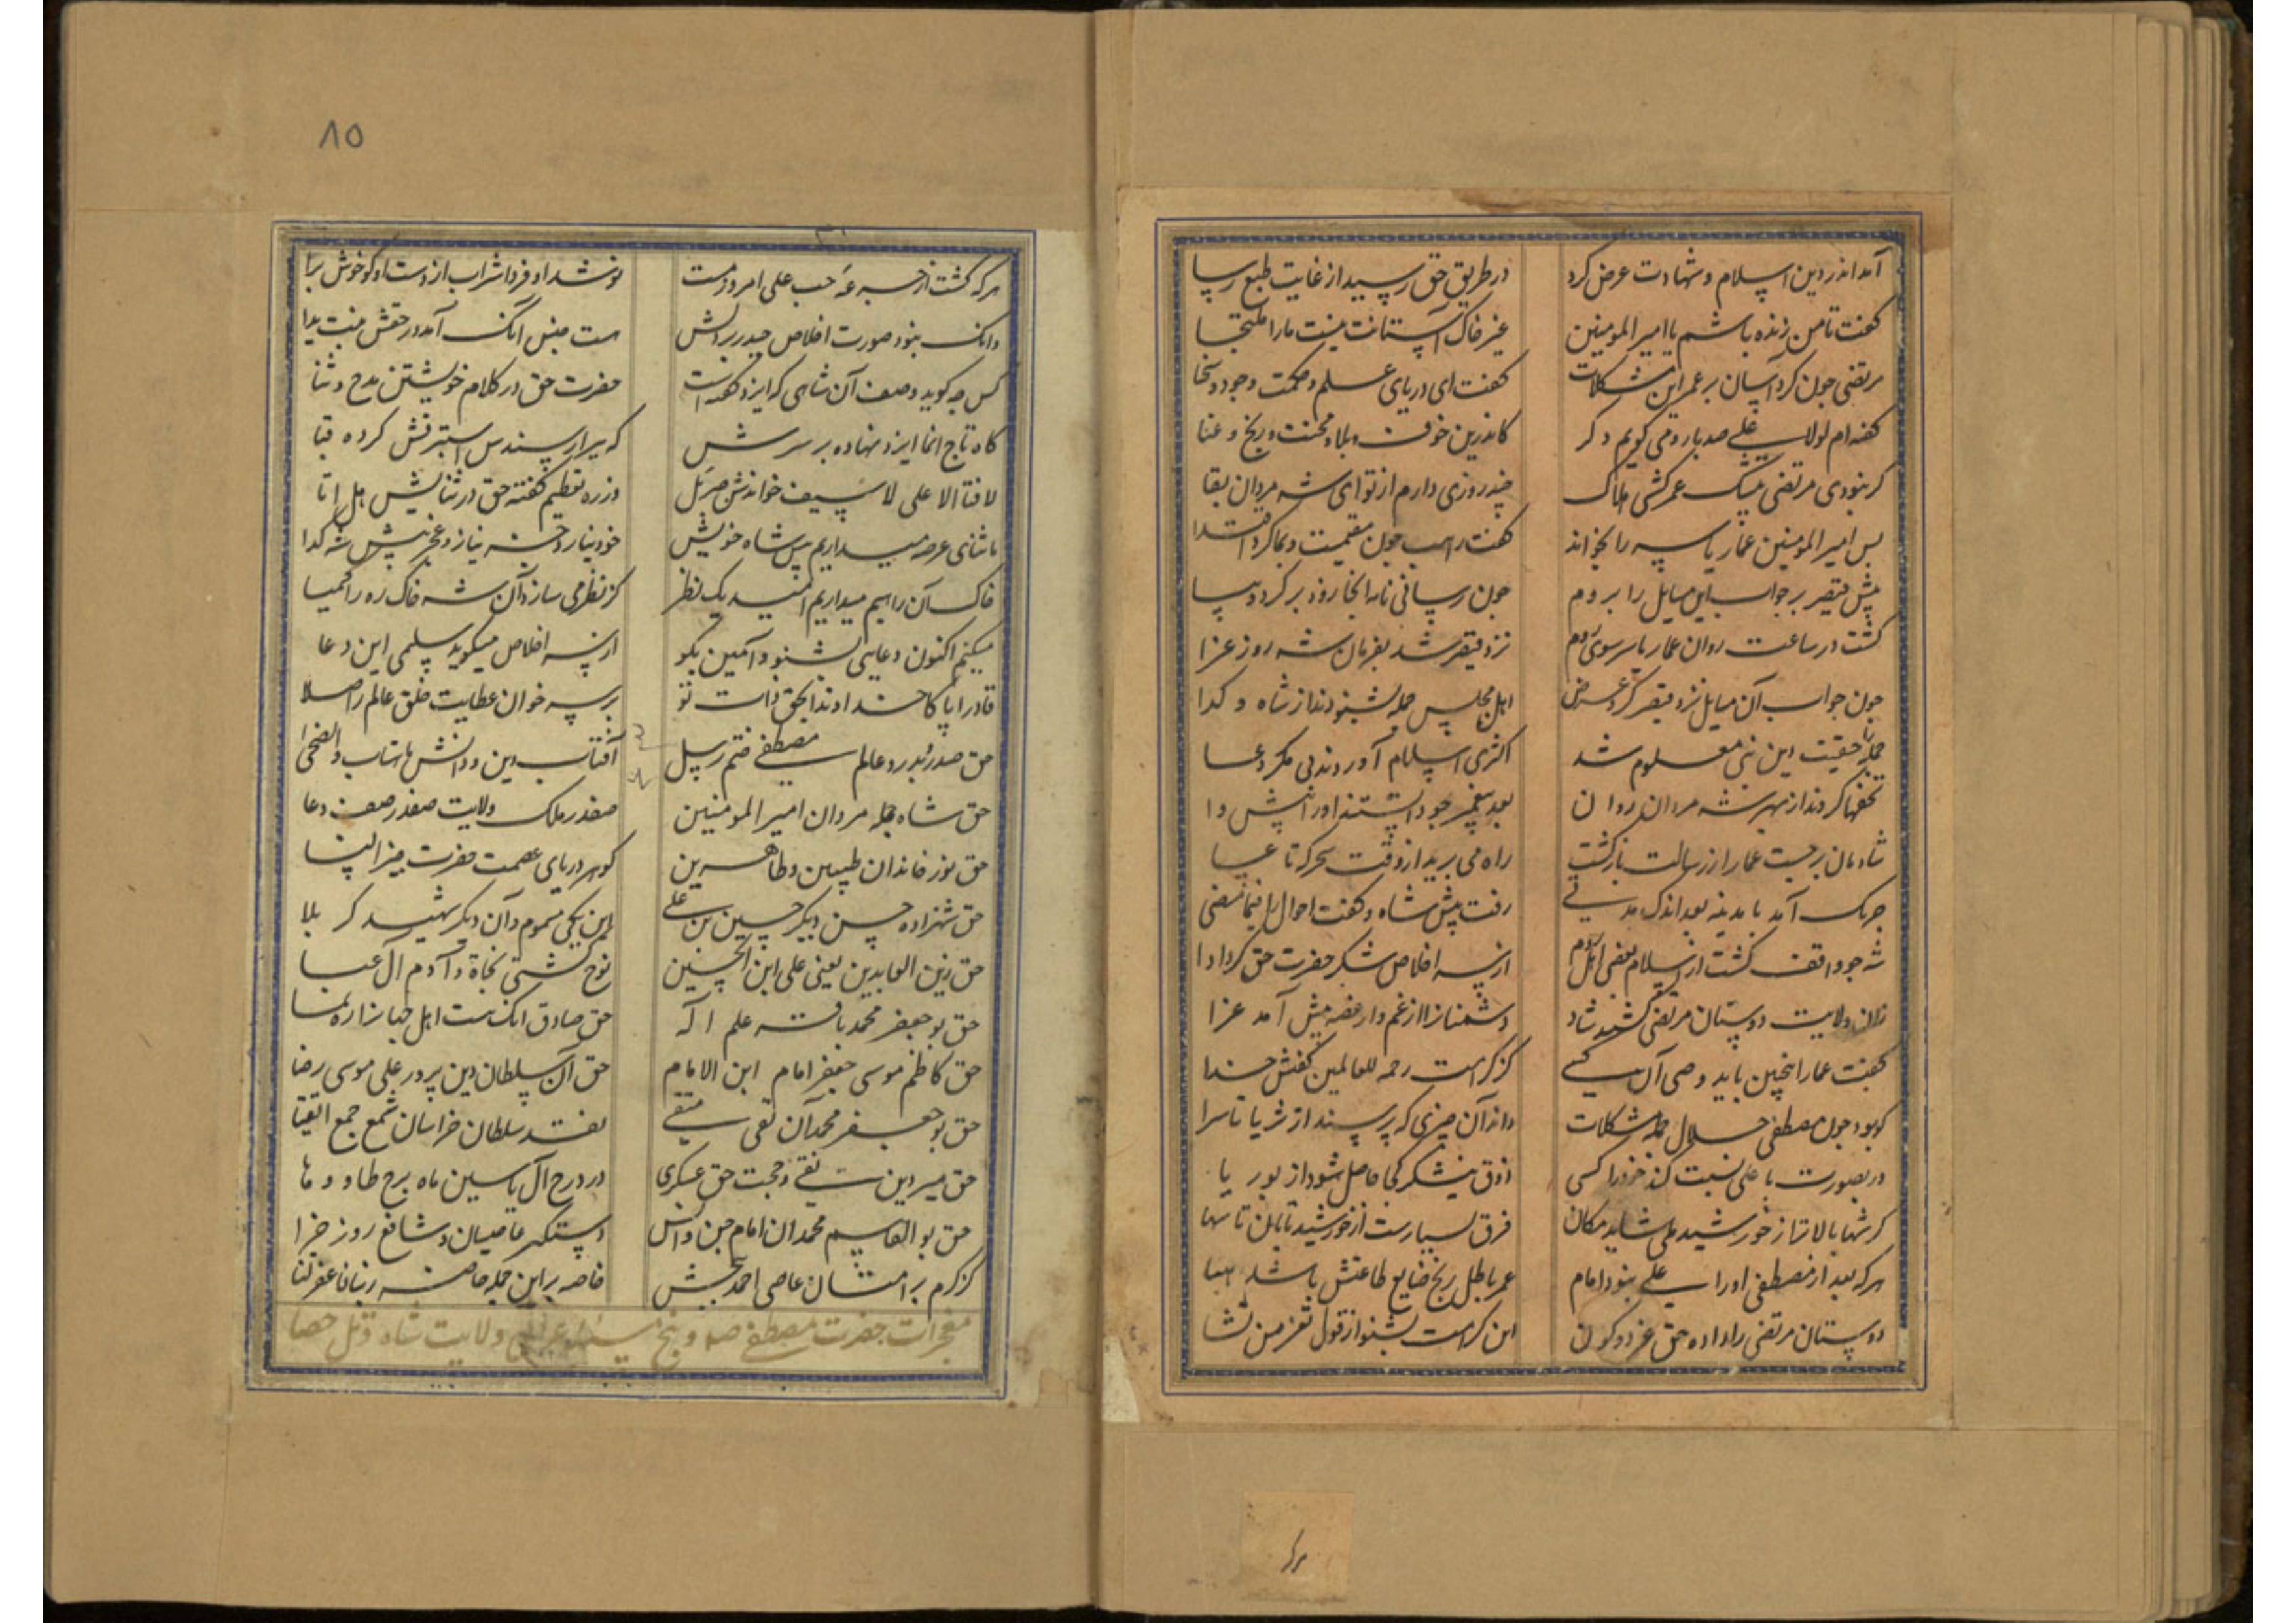 آمد اندر دین اسلام و شهادت عرض کرد در طریق حق رسید از غایت طبع رسا
کفت تا من زنده باشم یا امیرالمومنین غیر خاک آستانت نیست ما را ملتجا
مرتضی چون کرد آسان بر عمر این مشکلات کفت ای دریای علم و حکمت وجود و سخا
کفته‌ام لولا علی صد بار و می کویم دکر کاندرین خوف و بلا و محنت و رنج و عنا
کر نبودی مرتضی بیشک عمر کشتی هلاک چند روزی دارم از تو ای شه مردان بقا
بس امیرالمومنین عمار یاسر را بخواند کفت راهب چون مقیمست و بما کرد اقتدا
پیش قیصر بر جواب این مسایل را بروم چون رسانی نامه انجا زود برکرد و بیا
کشت در ساعت روان عمار یاسر سوی روم نزد قیصر شد بفرمان شه روز عزا
چون جواب آن مسایل نزد قیصر کرد عرض اهل مجلس جمله بشنودند از شاه و کدا
جمله را حقیقت دین نبی معلوم شد اکثری اسلام آوردند بی مکر و دغا
تحفها کردند از بهر شه مردان روان بعد پیغمبر چو دانستند او را پیشوا
شادمان برجست عمار از رسالت بازکشت راه می برید از وقت سحرکه تا عشا
آمد با مدینه بعد اندک مدتی رفت پیش شاه و کفت احوال را فیما مضی
شه چو واقف کشت از اسلام بعضی اهل روم از سر اخلاص شکر حضرت حق کرد ادا
زان ولایت دوستان مرتضی کشتند شاد دشمنانرا از غم دل غصه پیش آمد عزا
کفت عمار اینچنین باید وصی آن کسی کز کرامت رحمة للعالمین کفتش خدا
کو بود چون مصطفی حلال جمله مشکلات داند آن چیزی که پرسند از ثریا تا سرا
در بصورت با علی نسبت کند خود را کسی ذوق نیشکر کجا حاصل شود از بوریا
کر سها بالاتر از خورشید می شاید مکان فرق بسیارست از خورشید تابان تا سها
هرکه بعد از مصطفی او را علی نبود امام عمر باطل رنج ضایع طاعتش باشد هبا
دوستان مرتضی را داده حق عز دو کون این کرامت بشنو از قول تعز من تشا
۸۵
هرکه کشت از جرعه حب علی امروز مست نوشد او فردا شراب از دست او کو خوش برا
وانک نبود صورت اخلاص حیدر بر دلش
کس چه کوید وصف آن شاهی که ایزد کفته است حضرت حق در کلام خویشتن مدح و ثنا
کاه تاج انما ایزد نهاده بر سرش که سرا از سندس استبرقش کرده قبا
لا فتا الا علی لا سیف خواندش جبرئیل وز ره تعظیم کفته حق در ثنایش هل اتا
ما ثنای عرضه میداریم پیش شاه خویش خود نیارد جز نیاز و عجز پیش شه کدا
خاک آن راهیم میداریم امید یک نظر کز نظر می سازد آن شه خاک ره را کیمیا
میکنم اکنون دعایی بشنو و آمین بکو از سر اخلاص میکوید سلمی این دعا
قادرا پاکا خداوندا بحق ذات تو بر سر خوان عطایت خلق عالم را صلا
حق صدر و بدر دو عالم مصطفی ختم رسل آفتاب دین و دانش ماهتاب والضحی
حق شاه جمله مردان امیرالمومنین صفدر ملک ولایت صفدر صف دعا
حق نور خاندان طیبین و طاهرین کوهر دریای عصمت حضرت خیرالنسا
حق شهزاده حسن دیکر حسین بن علی این یکی مسموم و آن دیکر شهید کربلا
حق زین العابدین یعنی علی ابن الحسین نوح کشتی نجاة و آدم آل عبا
حق بوجعفر محمد باقر علم اله حق صادق انک هست اهل جهانرا رهنما
حق کاظم موسی جعفر امام ابن الامام حق آن سلطان دین پرور علی موسی رضا
حق بوجعفر محمد آن تقی متقی نقد سلطان خراسان شمع جمع اتقیا
حق میر دین نقی و حجت حق عسکری در درج آل یاسین ماه برج طا و ها
حق بوالقاسم محمد ان امام جن و انس دستکیر عاصیان و شافع روز جزا
کز کرم بر امتان عاصی احمد ببخش خاصه بر این جمله حاضر ربنا فاغفر لنا
معجزات حضرت مصطفی ولایت شاه و نقل حصا